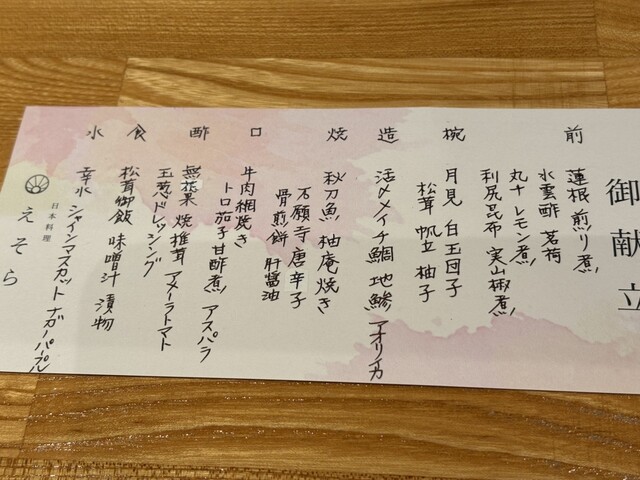 御献立
前
蓮根煎り煮
水雲酢 茗荷
丸十レモン煮
利尻昆布 実山椒煮
椀
月見 白玉団子
松茸 帆立 柚子
造
活〆メイチ鯛 地鯵 アオリイカ
焼
秋刀魚 柚庵焼き
石願寺唐辛子
骨煎餅 肝醤油
口
牛肉網焼き
トロ茄子甘酢煮 アスパラ
酢
無花果 焼椎茸 アメーラトマト
玉葱ドレッシング
食
松茸御飯 味噌汁 漬物
水
幸水 シャインマスカット ナガノパープル
日本料理
えそら